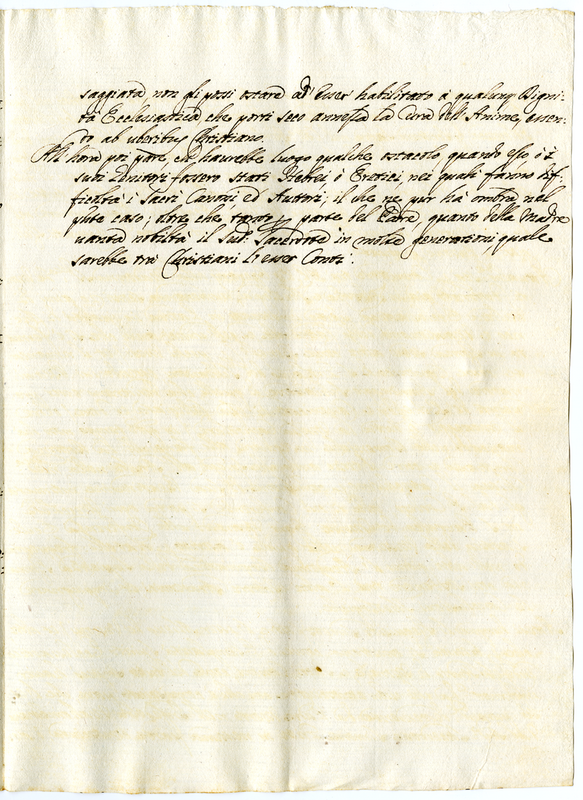 saggiata non gli possi ostare ad esser habilitato à qualunq Digni-
tà Ecclesiastica, che porti seco annessa la Cura dell'Anime, essen-
do ab uberibus Christiano.
All'hora poi pare, che haurebbe luogo qualche ostacolo quando esso, ò i
suoi Genitori fossero stati Hebrei, ò Eretici, nei quali fanno dif-
ficultà i Sacri Canoni ed Autori; il che ne pur hà ombra nel
pñte caso; oltre che tanto per parte del Padre, quanto della Madre
uanta nobiltà il Sud. Sacerdote in molte generationi, quale
sarebbe trà Christiani l'esser Conti.